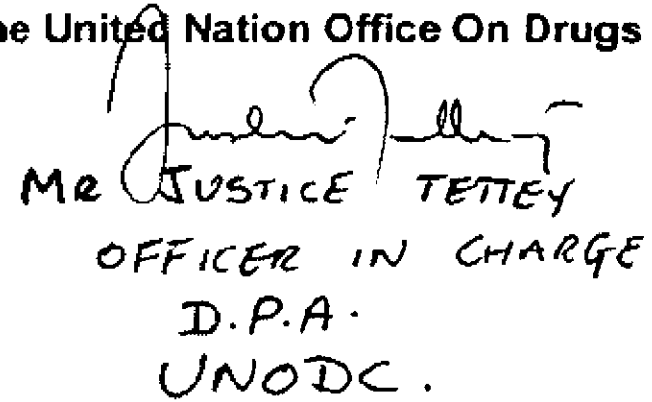 he United Nation Office On Drugs
Mr JUSTICE TETTEY
OFFICER IN CHARGE
D.P.A.
UNODC.